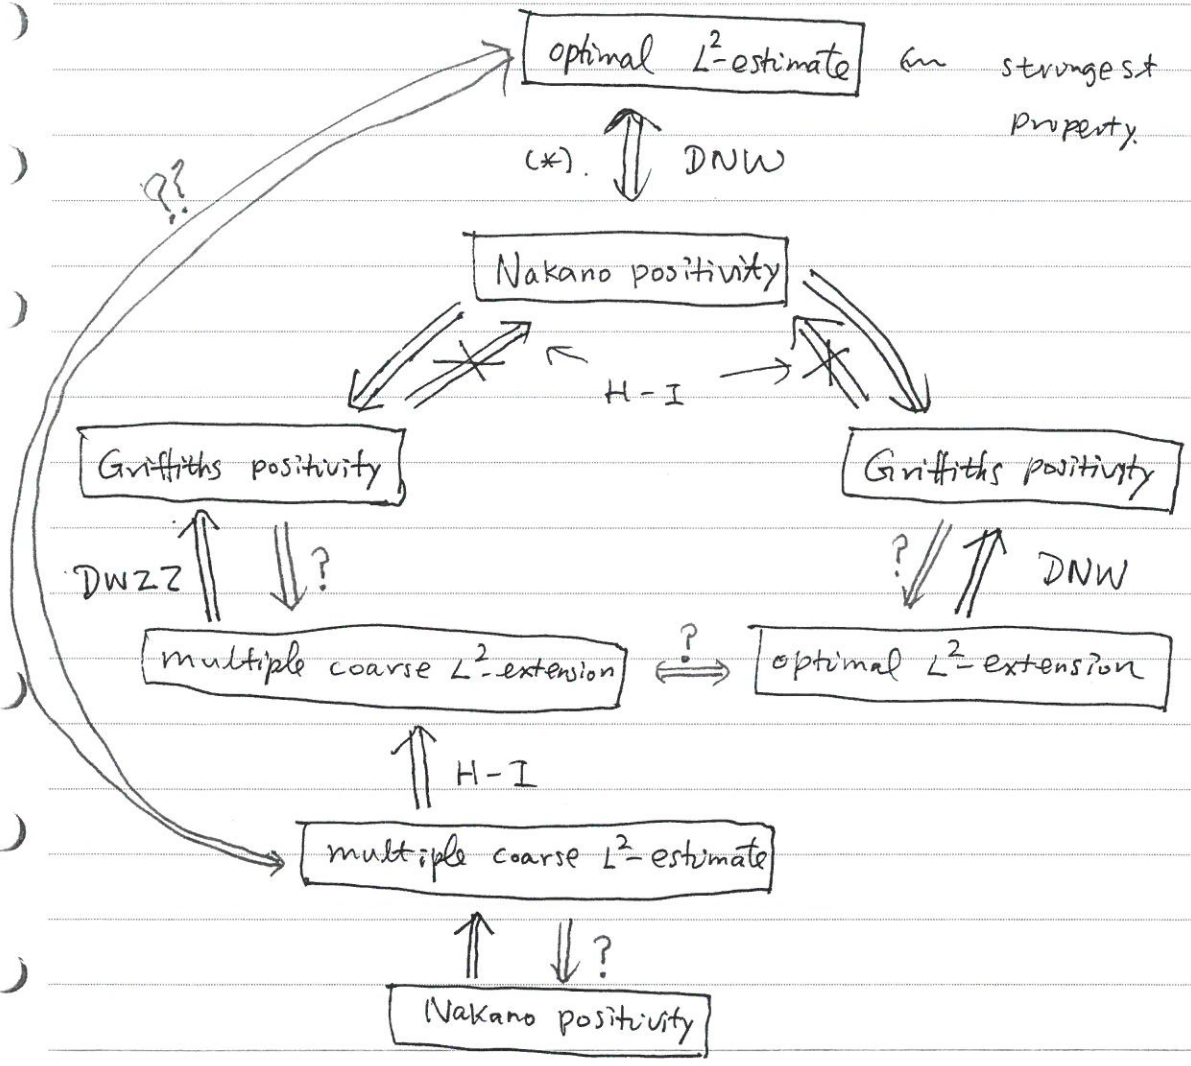 optimal L²-estimate
strongest
property.
(*).
DNW
??
Nakano positivity
H-I
Griffiths positivity
Griffiths positivity
DWZZ
?
?
DNW
multiple coarse L²-extension
?
optimal L²-extension
H-I
multiple coarse L²-estimate
?
Nakano positivity